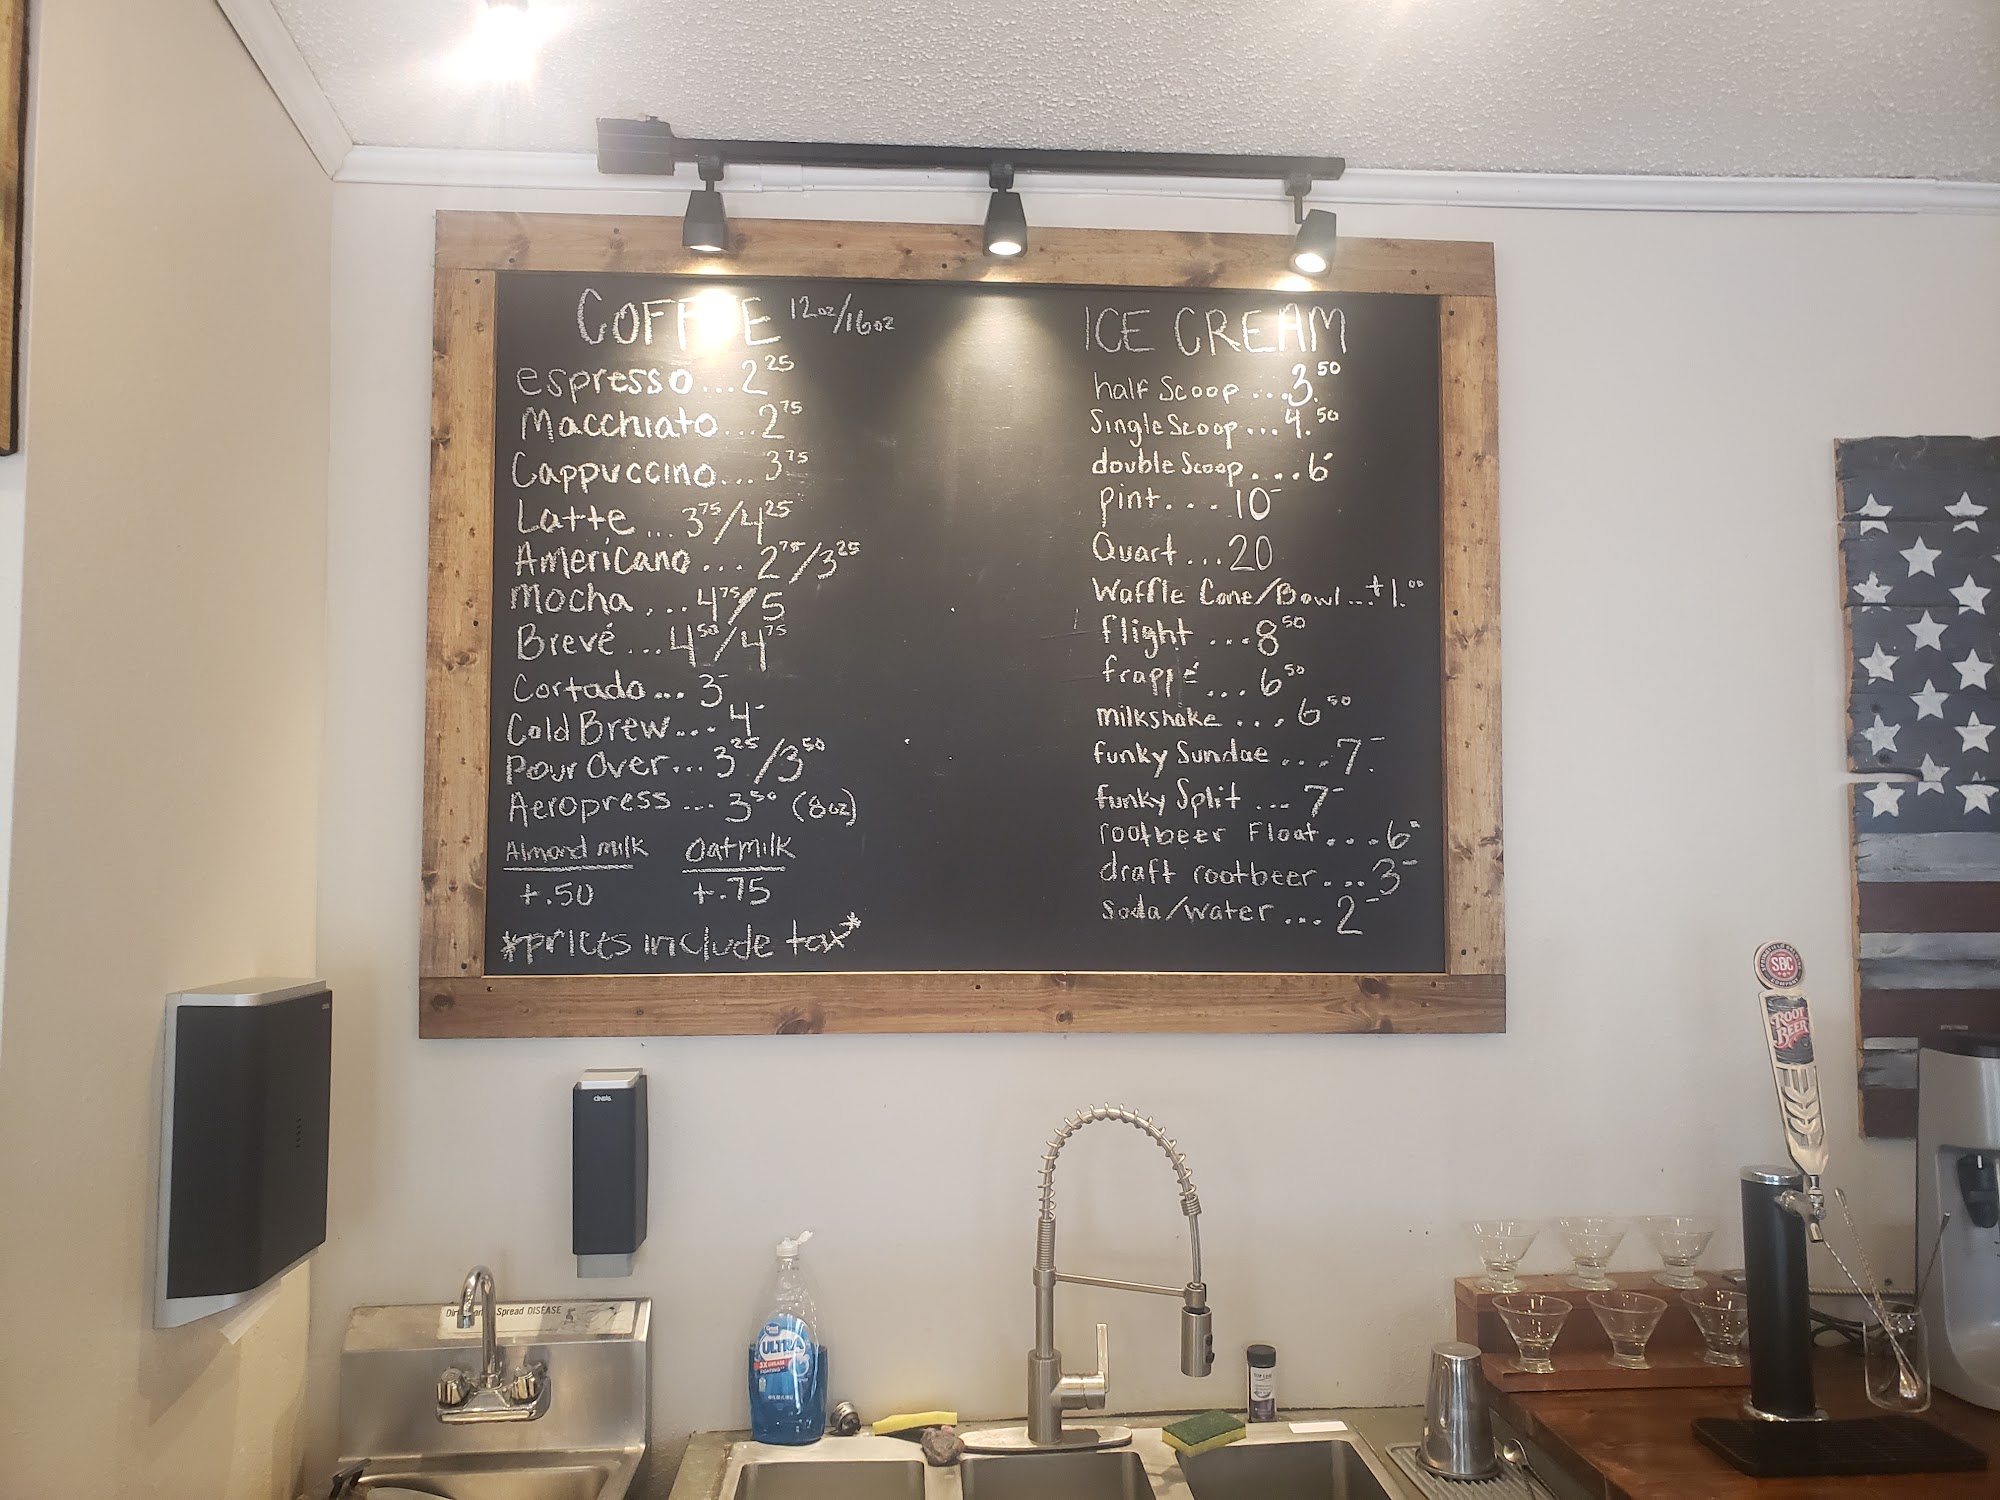 COFFEE 12oz/16oz
espresso...2.25
Macchiato...2.75
Cappuccino...3.75
Latte...3.75/4.25
Americano...2.75/3.25
Mocha...4.75/5
Brevé...4.50/4.75
Cortado...3-
Cold Brew...4-
Pour Over...3.25/3.50
Aeropress...3.50 (8oz)
Almond milk Oatmilk
+.50 +.75
*prices include tax*
ICE CREAM
half Scoop...3.50
Single Scoop...4.50
double Scoop...6-
pint...10-
Quart...20
Waffle Cone/Bowl...+1.00
flight...8.50
frappé...6.50
milkshake...6.50
funky Sundae...7-
funky Split...7-
rootbeer Float...6-
draft rootbeer...3-
Soda/water...2-
SBC
COMPANY
ROOT
BEER
Spread DISEASE
ULTRA